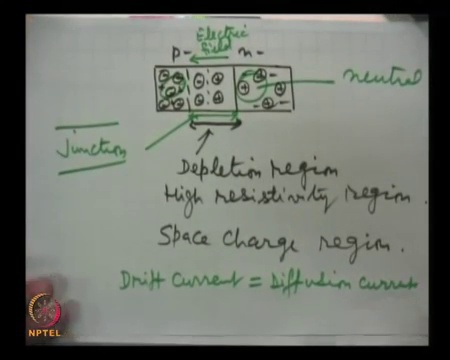 Electric
field
p- n-
neutral
Junction
Depletion region
High resistivity region.
Space Charge region.
Drift Current = Diffusion Current
NPTEL